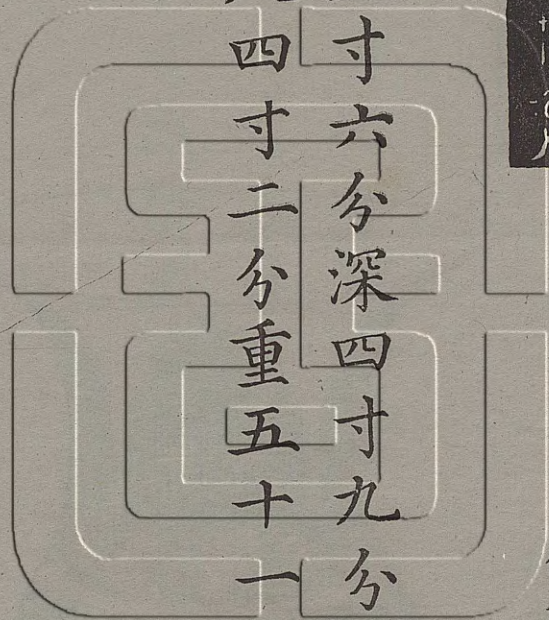 寸六分深四寸九分
四寸二分重五十一